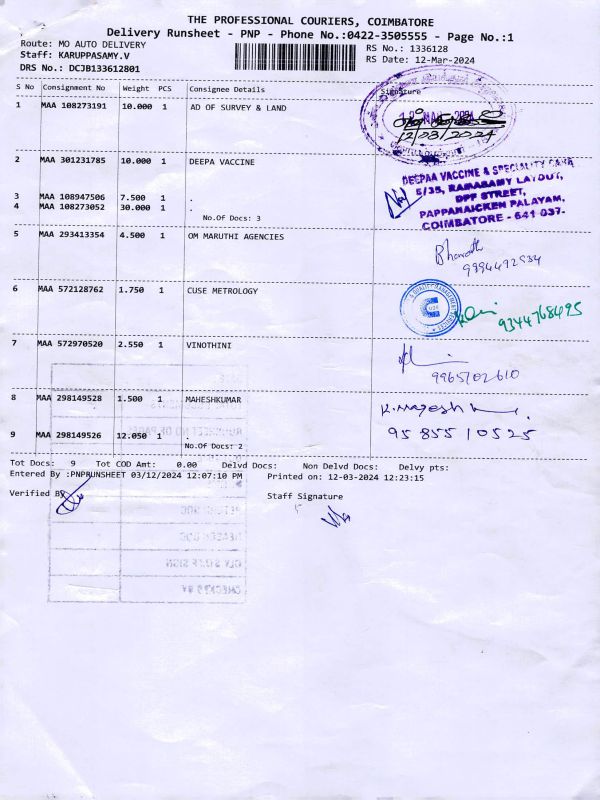 THE PROFESSIONAL COURIERS, COIMBATORE
Delivery Runsheet - PNP - Phone No.:0422-3505555 - Page No.:1
Route: MO AUTO DELIVERY RS No.: 1336128
Staff: KARUPPASAMY.V RS Date: 12-Mar-2024
DRS No.: DCJB133612801
S No Consignment No Weight PCS Consignee Details Signature
1 MAA 108273191 10.000 1 AD OF SURVEY & LAND
12/03/2024
2 MAA 301231785 10.000 1 DEEPA VACCINE
DEEPAA VACCINE & SPECIALITY CARE
5/35, RAMASAMY LAYOUT,
DPF STREET,
PAPPANAICKEN PALAYAM,
COIMBATORE - 641 037.
3 MAA 108947506 7.500 1 .
4 MAA 108273052 30.000 1 .
No.Of Docs: 3
5 MAA 293413354 4.500 1 OM MARUTHI AGENCIES
Bharath
9994492534
6 MAA 572128762 1.750 1 CUSE METROLOGY
9344768495
7 MAA 572970520 2.550 1 VINOTHINI
9965702610
8 MAA 298149528 1.500 1 MAHESHKUMAR
K.Magesh
9 MAA 298149526 12.050 1 .
95855 10525
No.Of Docs: 2
Tot Docs: 9 Tot COD Amt: 0.00 Delvd Docs: Non Delvd Docs: Delvy pts:
Entered By :PNPRUNSHEET 03/12/2024 12:07:10 PM Printed on: 12-03-2024 12:23:15
Verified By Staff Signature